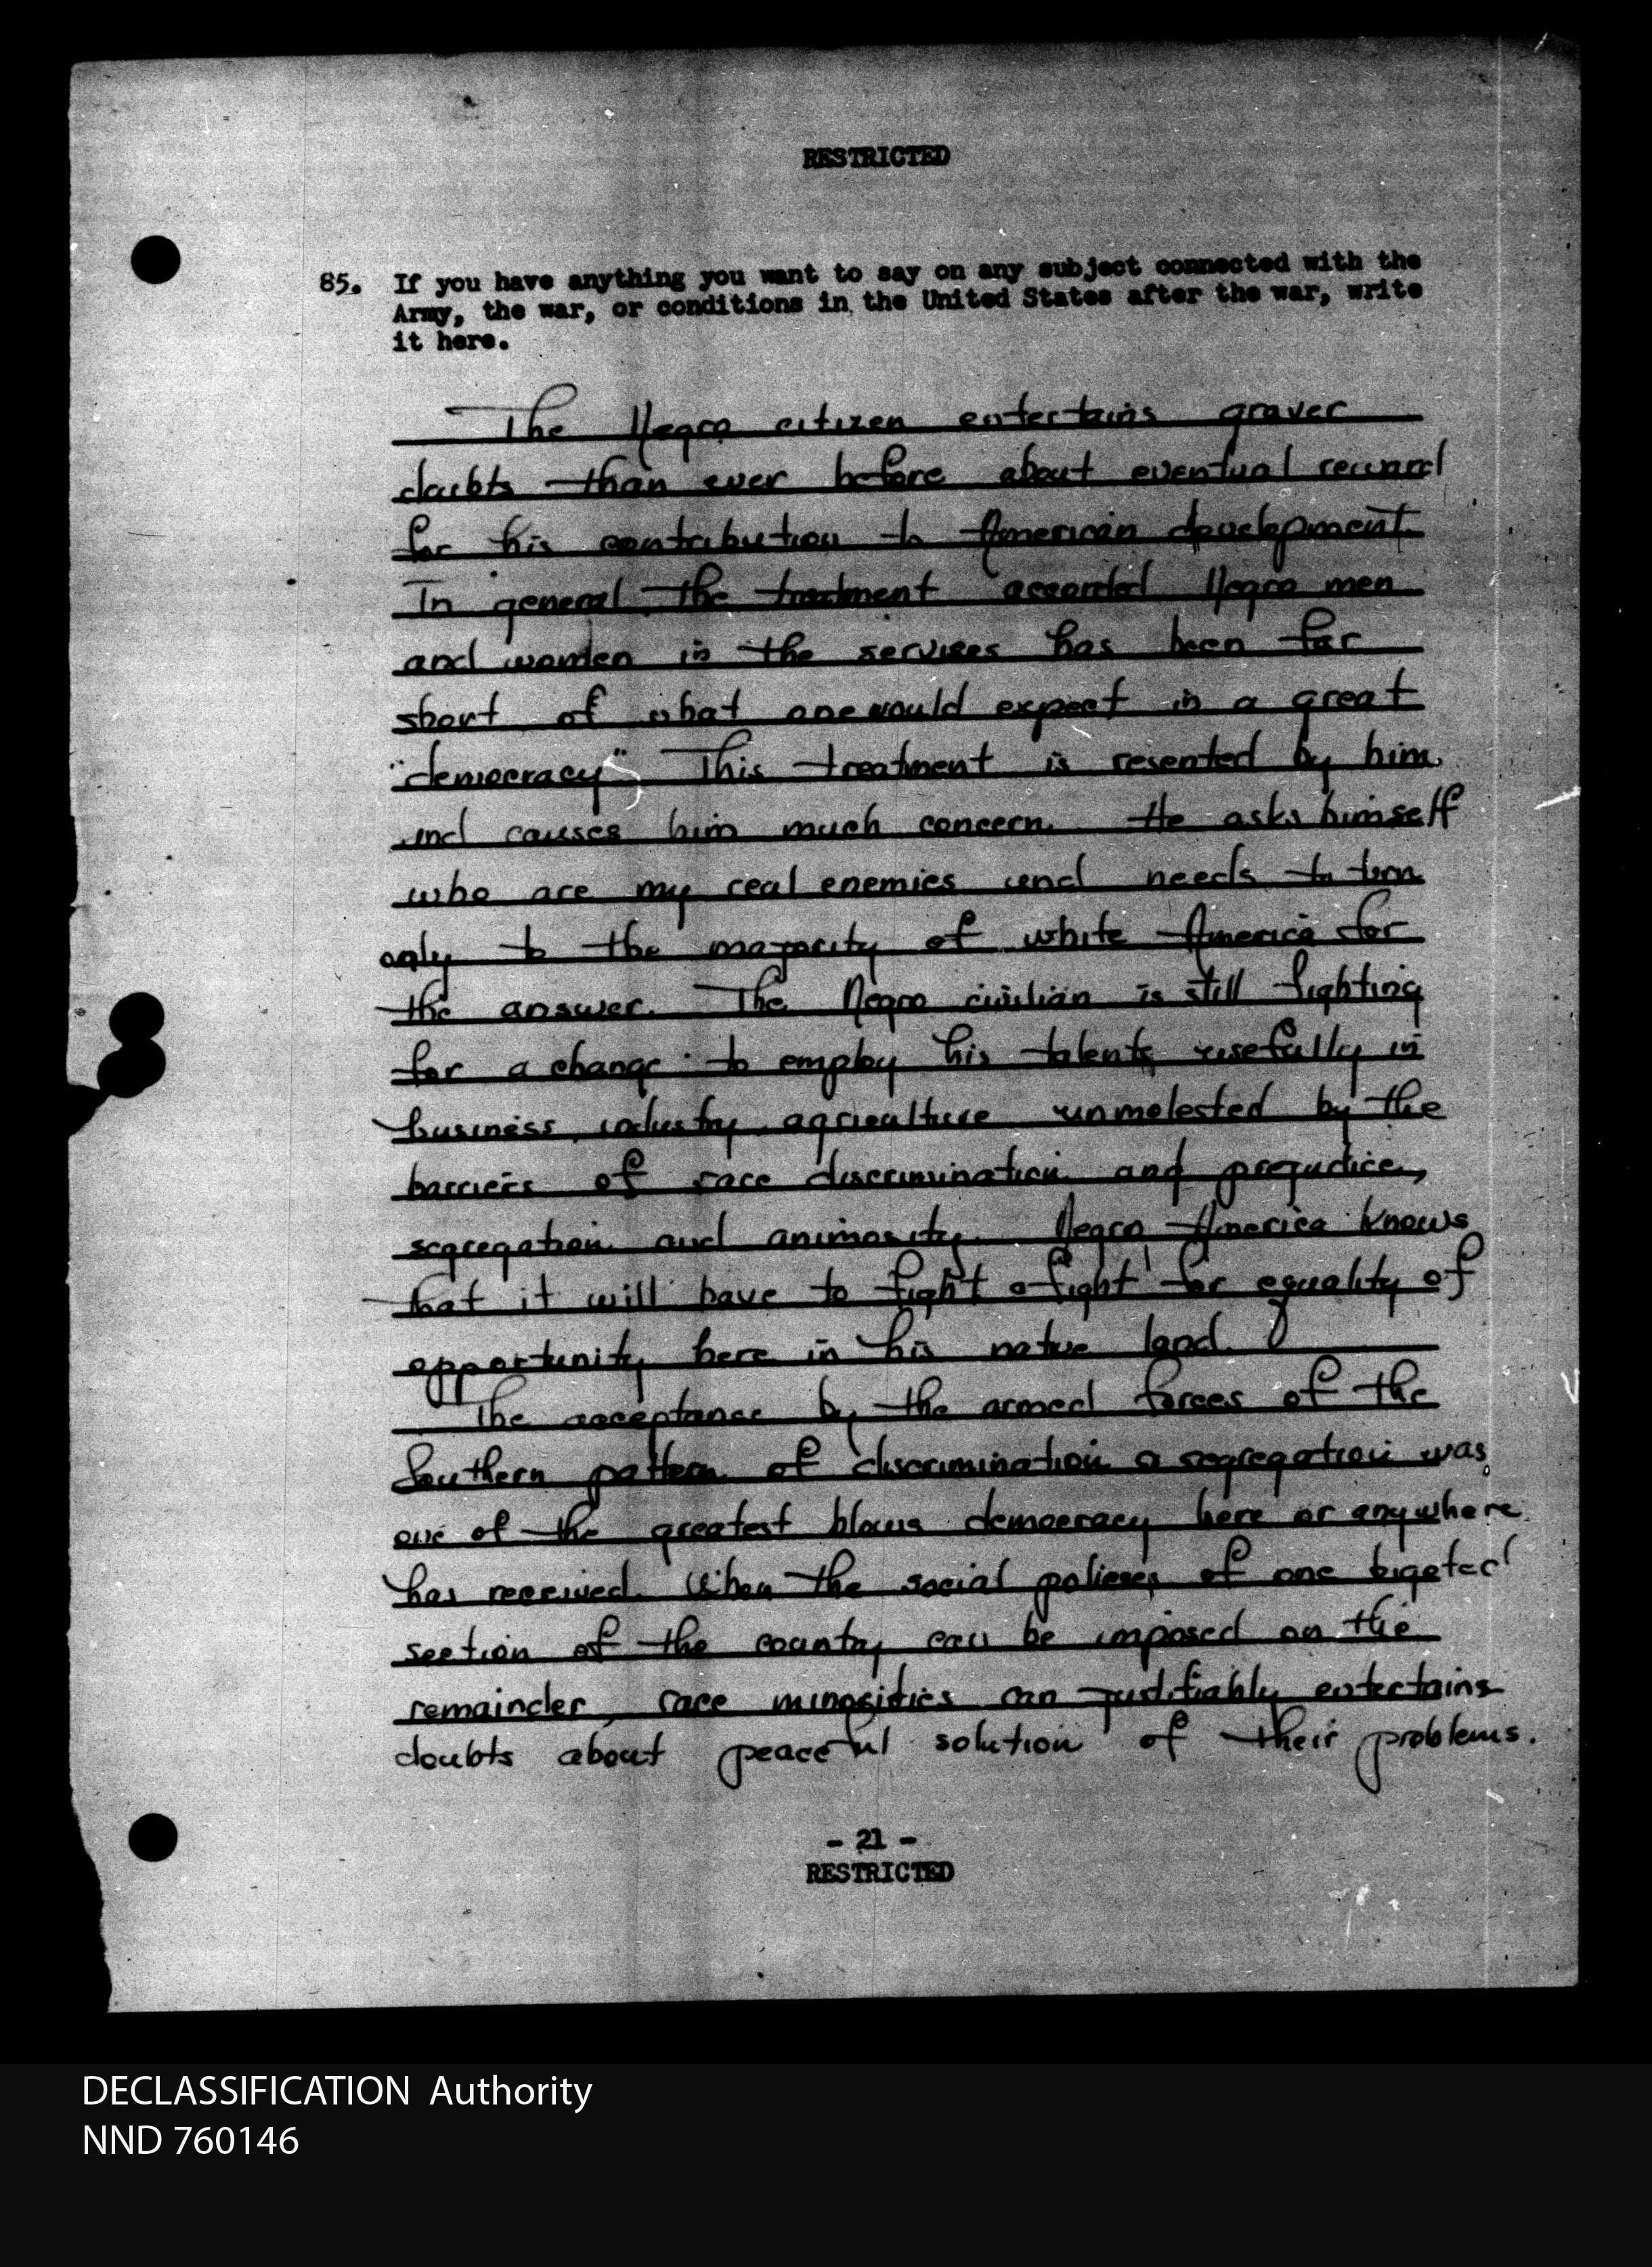 RESTRICTED
85. If you have anything you want to say on any subject connected with the
Army, the war, or conditions in the United States after the war, write
it here.
The Negro citizen entertains graver
doubts than ever before about eventual reward
for his contribution to American development.
In general, the treatment accorded Negro men
and women in the services has been far
short of what one would expect in a great
"democracy". This treatment is resented by him
and causes him much concern. He asks himself
who are my real enemies and needs to turn
only to the majority of white America for
the answer. The Negro civilian is still fighting
for a change to employ his talents usefully in
business, industry, agriculture unmolested by the
barriers of race discrimination and prejudice,
segregation and animosity. Negro America knows
that it will have to fight a fight for equality of
opportunity here in his native land.
The acceptance by the armed forces of the
Southern pattern of discrimination a segregation was
one of the greatest blows democracy here or anywhere
has received. When the social policies of one bigoted
section of the country can be imposed on the
remainder, race minorities can justifiably entertains
doubts about peaceful solution of their problems.
- 21 -
RESTRICTED
DECLASSIFICATION Authority
NND 760146